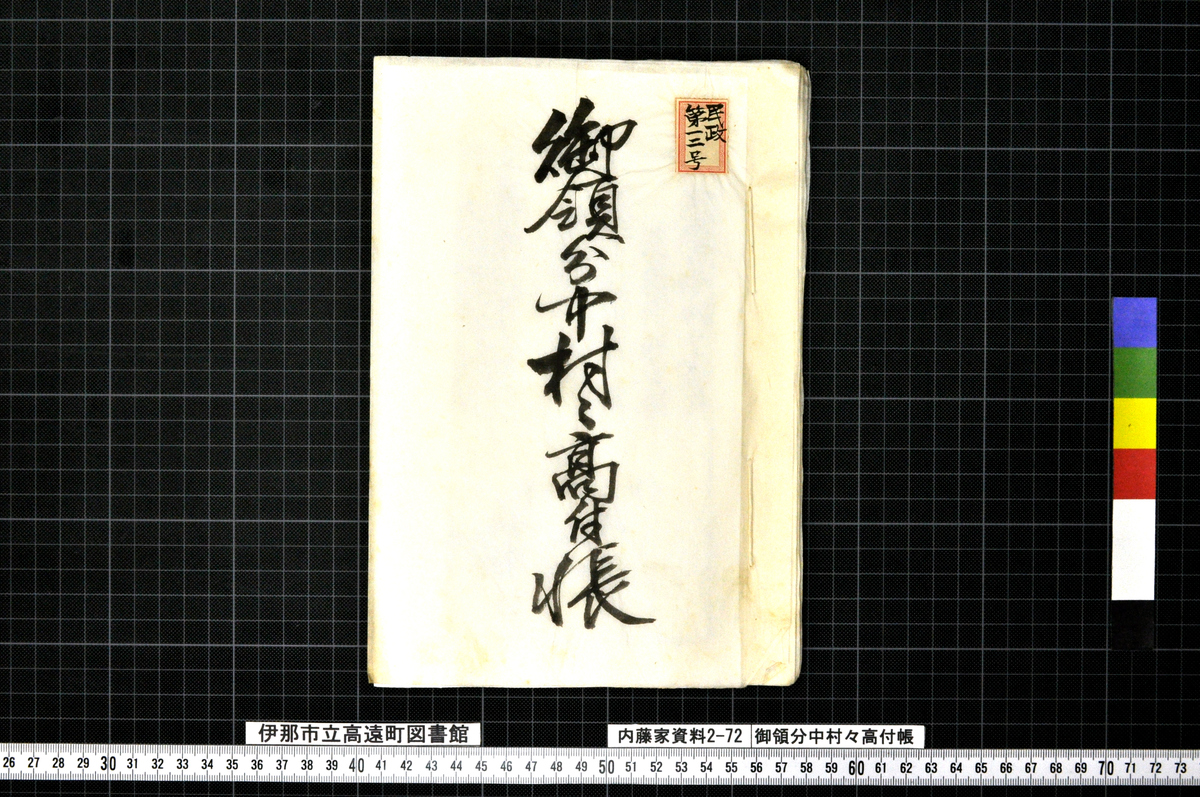 民政
第一三号
御領分中村々高付帳
伊那市立高遠町図書館
内藤家資料2-72 御領分中村々高付帳
26 27 28 29 30 31 32 33 34 35 36 37 38 39 40 41 42 43 44 45 46 47 48 49 50 51 52 53 54 55 56 57 58 59 60 61 62 63 64 65 66 67 68 69 70 71 72 73